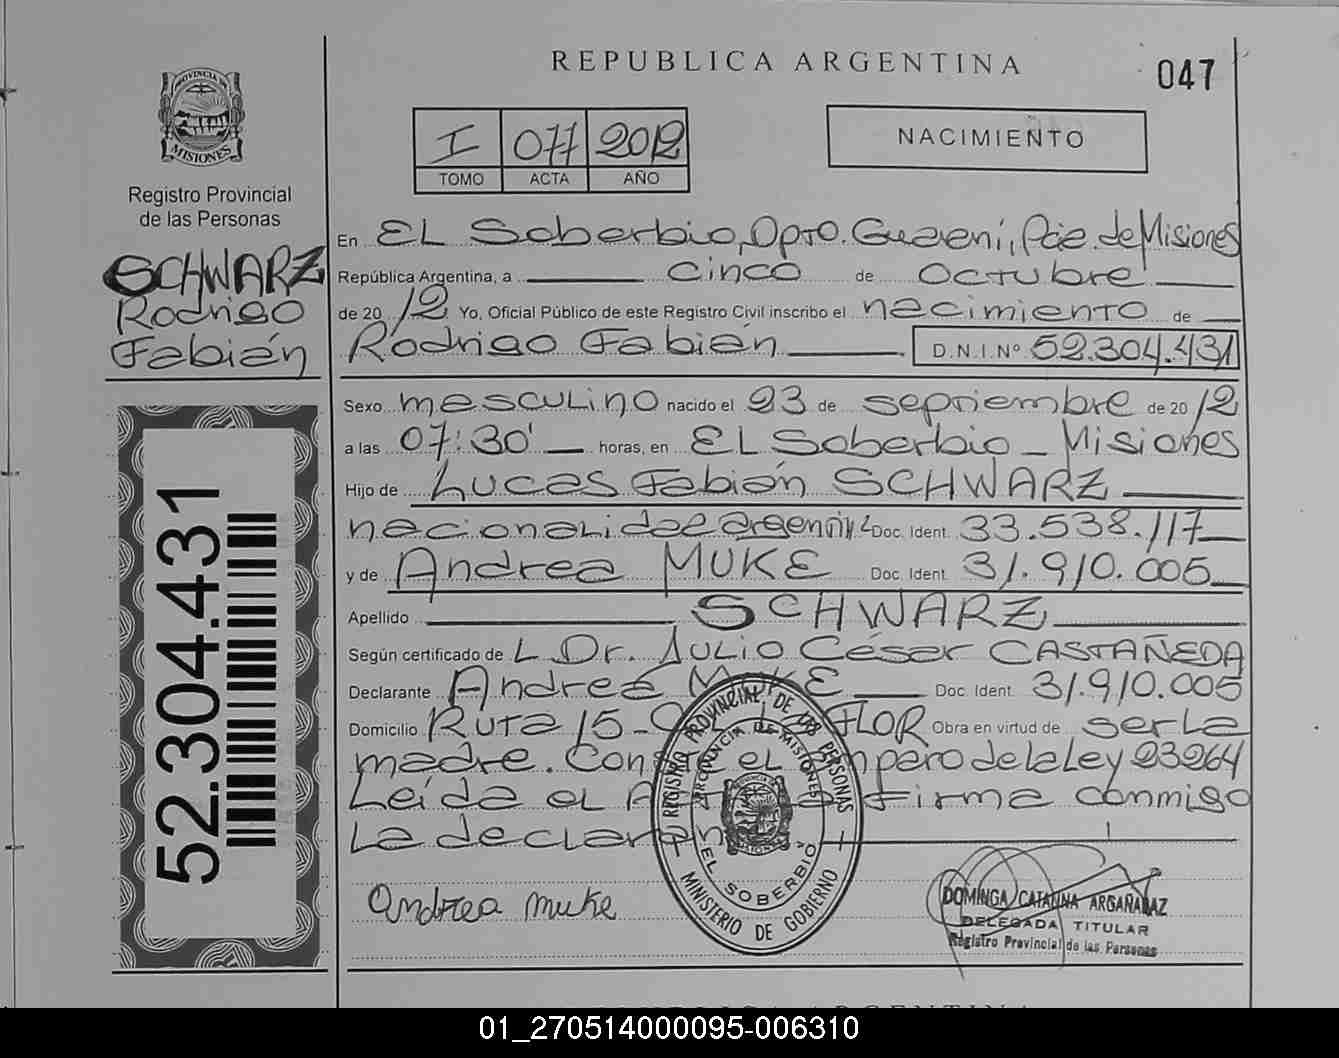 REPUBLICA ARGENTINA
047
PROVINCIA DE
MISIONES
Registro Provincial
de las Personas
I 077 2012
TOMO ACTA AÑO
NACIMIENTO
SCHWARZ
Rodrigo
Fabián
52.304.431
En EL Soberbio, Dpto. Guaraní, Pcia. de Misiones
República Argentina, a cinco de octubre
de 2012 Yo, Oficial Público de este Registro Civil inscribo el nacimiento de
Rodrigo Fabián D.N.I.Nº 52.304.431
Sexo masculino nacido el 23 de septiembre de 2012
a las 07:30' horas, en EL Soberbio - Misiones
Hijo de Lucas Fabián SCHWARZ
nacionalidad argentina Doc. Ident. 33.538.117
y de Andrea MUKE Doc. Ident. 31.910.005
Apellido SCHWARZ
Según certificado de L Dr. Julio César CASTAÑEDA
Declarante Andrea MUKE Doc. Ident. 31.910.005
Domicilio Ruta 15 - FLOR Obra en virtud de ser la
madre. Con el amparo de la Ley 23264
Leída el Acta firma conmigo
La declarante
REGISTRO PROVINCIAL DE LAS PERSONAS
PROVINCIA DE MISIONES
EL SOBERBIO
MINISTERIO DE GOBIERNO
Andrea Muke
DOMINGA CATALINA ARGAÑARAZ
DELEGADA TITULAR
Registro Provincial de las Personas
01_270514000095-006310